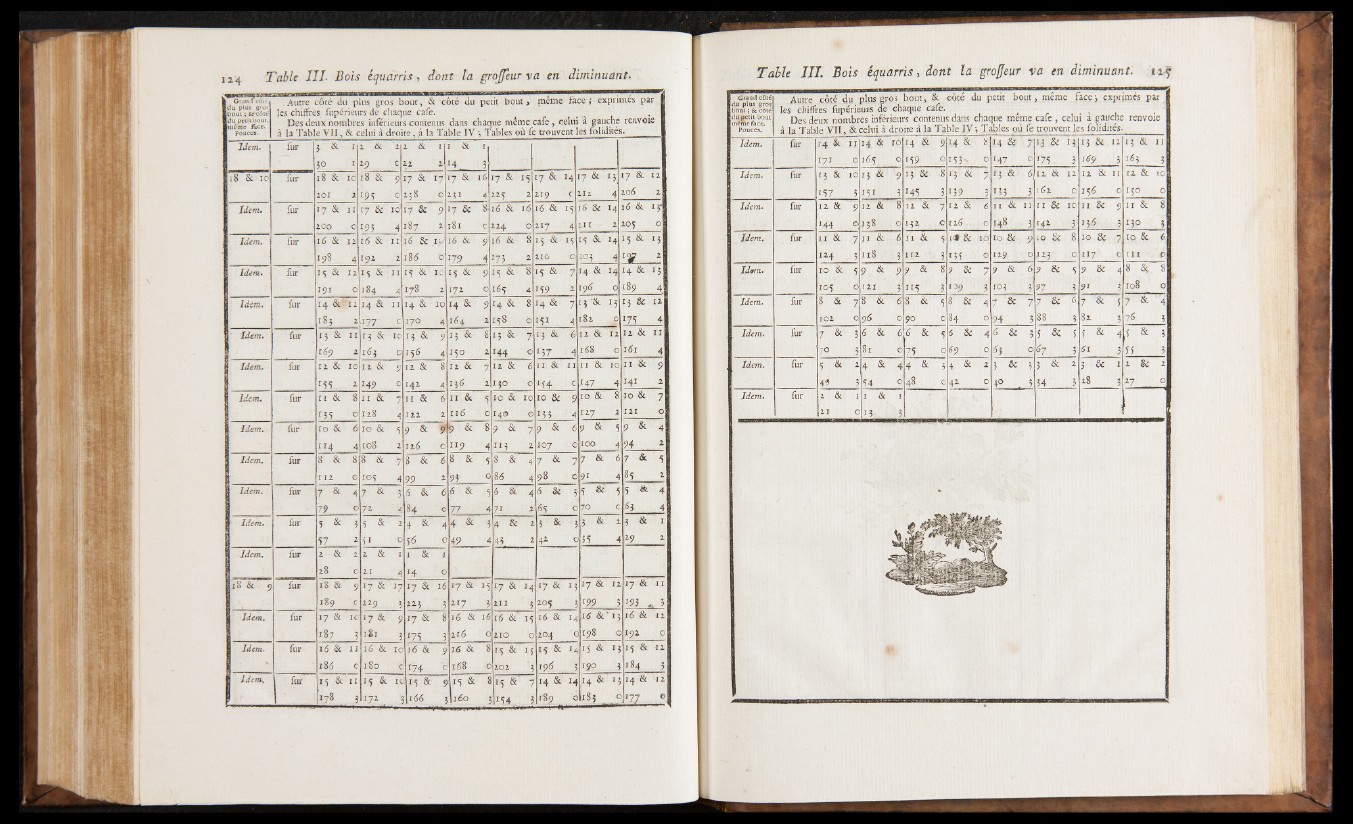 124 Table III. Bois équarris, dont la groſſeur va en diminuant.
Grand côté du plus gros bout ; & côté du petit bout, même face. Pouces.
Autre côté du plus gros bout, & côté du petit bout, même face ; exprimés par
les chiffres ſupérieurs de chaque caſe.
Des deux nombres inférieurs contenus dans chaque même caſe, celui à gauche renvoie
à la Table VII, & celui à droite, à la Table IV ; Tables où ſe trouvent les ſolidités.
Idem. ſur 3 & 1 2 & 2 2 & 1 1 & 1
30 1 29 0 22 2 14 3
18 & 10 ſur 18 & 10 18 & 9 17 & 17 17 & 16 17 & 15 17 & 14 17 & 13 17 & 12
201 2 195 0 238 0 231 4 225 2 219 0 212 4 206 2
Idem. ſur 17 & 11 17 & 10 17 & 9 17 & 8 16 & 16 16 & 15 16 & 14 16 & 13
200 0 193 4 187 2 181 0 224 0 217 4 211 2 205 0
Idem. ſur 16 & 12 16 & 11 16 & 10 16 & 9 16 & 8 15 & 15 15 & 14 15 & 13
198 4 192 2 186 0 179 4 173 2 210 0 203 4 197 2
Idem. ſur 15 & 12 15 & 11 15 & 10 15 & 9 15 & 8 15 & 7 14 & 14 14 & 13
191 0 184 4 178 2 172 0 165 4 159 2 196 0 189 4
Idem. ſur 14 & 12 14 & 11 14 & 10 14 & 9 14 & 8 14 & 7 13 & 13 13 & 12
183 2 177 0 170 4 164 2 158 0 151 4 182 0 175 4
Idem. ſur 13 & 11 13 & 10 13 & 9 13 & 8 13 & 7 13 & 6 12 & 12 12 & 11
169 2 163 0 156 4 150 2 144 0 137 4 168 0 161 4
Idem. ſur 12 & 10 12 & 9 12 & 8 12 & 7 12 & 6 11 & 11 11 & 10 11 & 9
155 2 149 0 142 4 136 2 130 0 154 0 147 4 141 2
Idem. ſur 11 & 8 11 & 7 11 & 6 11 & 5 10 & 10 10 & 9 10 & 8 10 & 7
135 0 128 4 122 2 116 0 140 0 133 4 127 2 121 0
Idem. ſur 10 & 6 10 & 5 9 & 9 9 & 8 9 & 7 9 & 6 9 & 5 9 & 4
114 4 108 2 126 0 119 4 113 2 107 0 100 4 94 2
Idem. ſur 8 & 8 8 & 7 8 & 6 8 & 5 8 & 4 7 & 7 7 & 6 7 & 5
112 0 105 4 99 2 93 0 86 4 98 0 91 4 85 2
Idem. ſur 7 & 4 7 & 3 6 & 6 6 & 5 6 & 4 6 & 3 5 & 5 5 & 4
79 0 72 4 84 0 77 4 71 2 65 0 70 0 63 4
Idem. ſur 5 & 3 5 & 2 4 & 4 4 & 3 4 & 2 3 & 3 3 & 2 3 & 1
57 2 51 0 56 0 49 4 43 2 42 0 35 4 29 2
Idem. ſur 2 & 2 2 & 1 1 & 1
28 0 21 4 14 0
18 & 9 ſur 18 & 9 17 & 17 17 & 16 17 & 15 17 & 14 17 & 13 17 & 12 17 & 11
189 0 229 3 223 3 217 3 211 3 205 3 199 3 193 3
Idem. ſur 17 & 10 17 & 9 17 & 8 16 & 16 16 & 15 16 & 14 16 & 13 16 & 12
187 3 181 3 175 3 216 0 210 0 204 0 198 0 192 0
Idem. ſur 16 & 11 16 & 10 16 & 9 16 & 8 15 & 15 15 & 14 15 & 13 15 & 12
186 0 180 0 174 0 168 0 202 3 196 3 190 3 184 3
Idem. ſur 15 & 11 15 & 10 15 & 9 15 & 8 15 & 7 14 & 14 14 & 13 14 & 12
178 3 172 3 166 3 160 3 154 3 189 0 183 0 177 0
Table III. Bois équarris, dont la groſſeur va en diminuant. 125
Grand côté du plus gros bout ; & côté du petit bout même face. Pouces.
Autre côté du plus gros bout, & côté du petit bout, même face ; exprimés par
les chiffres ſupérieurs de chaque caſe.
Des deux nombres inférieurs contenus dans chaque même caſe, celui à gauche renvoie
à la Table VII, & celui à droite à la Table IV ; Tables où ſe trouvent les ſolidités.
Idem. ſur 14 & 11 14 & 10 14 & 9 14 & 8 14 & 7 13 & 13 13 & 12 13 & 11
171 0 165 0 159 0 153 0 147 0 175 3 169 3 163 3
Idem. ſur 13 & 10 13 & 9 13 & 8 13 & 7 13 & 6 12 & 12 12 & 11 12 & 10
157 3 151 3 145 3 139 3 133 3 162 0 156 0 150 0
Idem. ſur 12 & 9 12 & 8 12 & 7 12 & 6 11 & 11 11 & 10 11 & 9 11 & 8
144 0 138 0 132 0 126 0 148 3 142 3 136 3 130 3
Idem. ſur 11 & 7 11 & 6 11 & 5 10 & 10 10 & 9 10 & 8 10 & 7 10 & 6
124 3 118 3 112 3 135 0 129 0 123 0 117 0 111 0
Idem. ſur 10 & 5 9 & 9 9 & 8 9 & 7 9 & 6 9 & 5 9 & 4 8 & 8
105 0 121 3 115 3 109 3 103 3 97 3 91 3 108 0
Idem. ſur 8 & 7 8 & 6 8 & 5 8 & 4 7 & 7 7 & 6 7 & 5 7 & 4
102 0 96 0 90 0 84 0 94 3 88 3 82 3 76 3
Idem. ſur 7 & 3 6 & 6 6 & 5 6 & 4 6 & 3 5 & 5 5 & 4 5 & 3
70 3 81 0 75 0 69 0 63 0 67 3 61 3 55 3
Idem. ſur 5 & 2 4 & 4 4 & 3 4 & 2 3 & 3 3 & 2 3 & 1 2 & 2
49 3 54 0 48 0 42 0 40 3 34 3 28 3 27 0
Idem. ſur 2 & 1 1 & 1
21 0 13 3